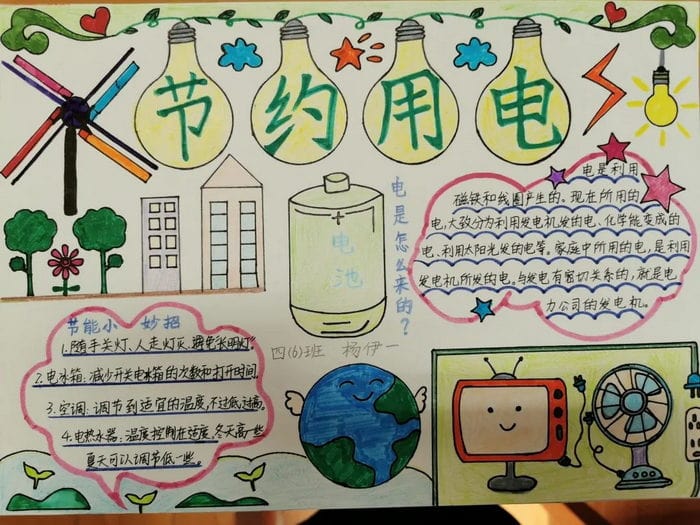 节约用电
电是利用
磁铁和线圈产生的。现在所用的
电,大致分为利用发电机发的电、化学能变成的
电、利用太阳光发的电等。家庭中所用的电,是利用
发电机所发的电。与发电有密切关系的,就是电
力公司的发电机。
电是怎么来的?
+
电池
节能小妙招
1.随手关灯、人走灯灭,避免“长明灯”
2.电冰箱:减少开关电冰箱的次数和打开时间。
3.空调:调节到适宜的温度,不过低,过高。
4.电热水器:温度控制在适度,冬天高一些
夏天可以调节低一些。
四(6)班 杨伊一